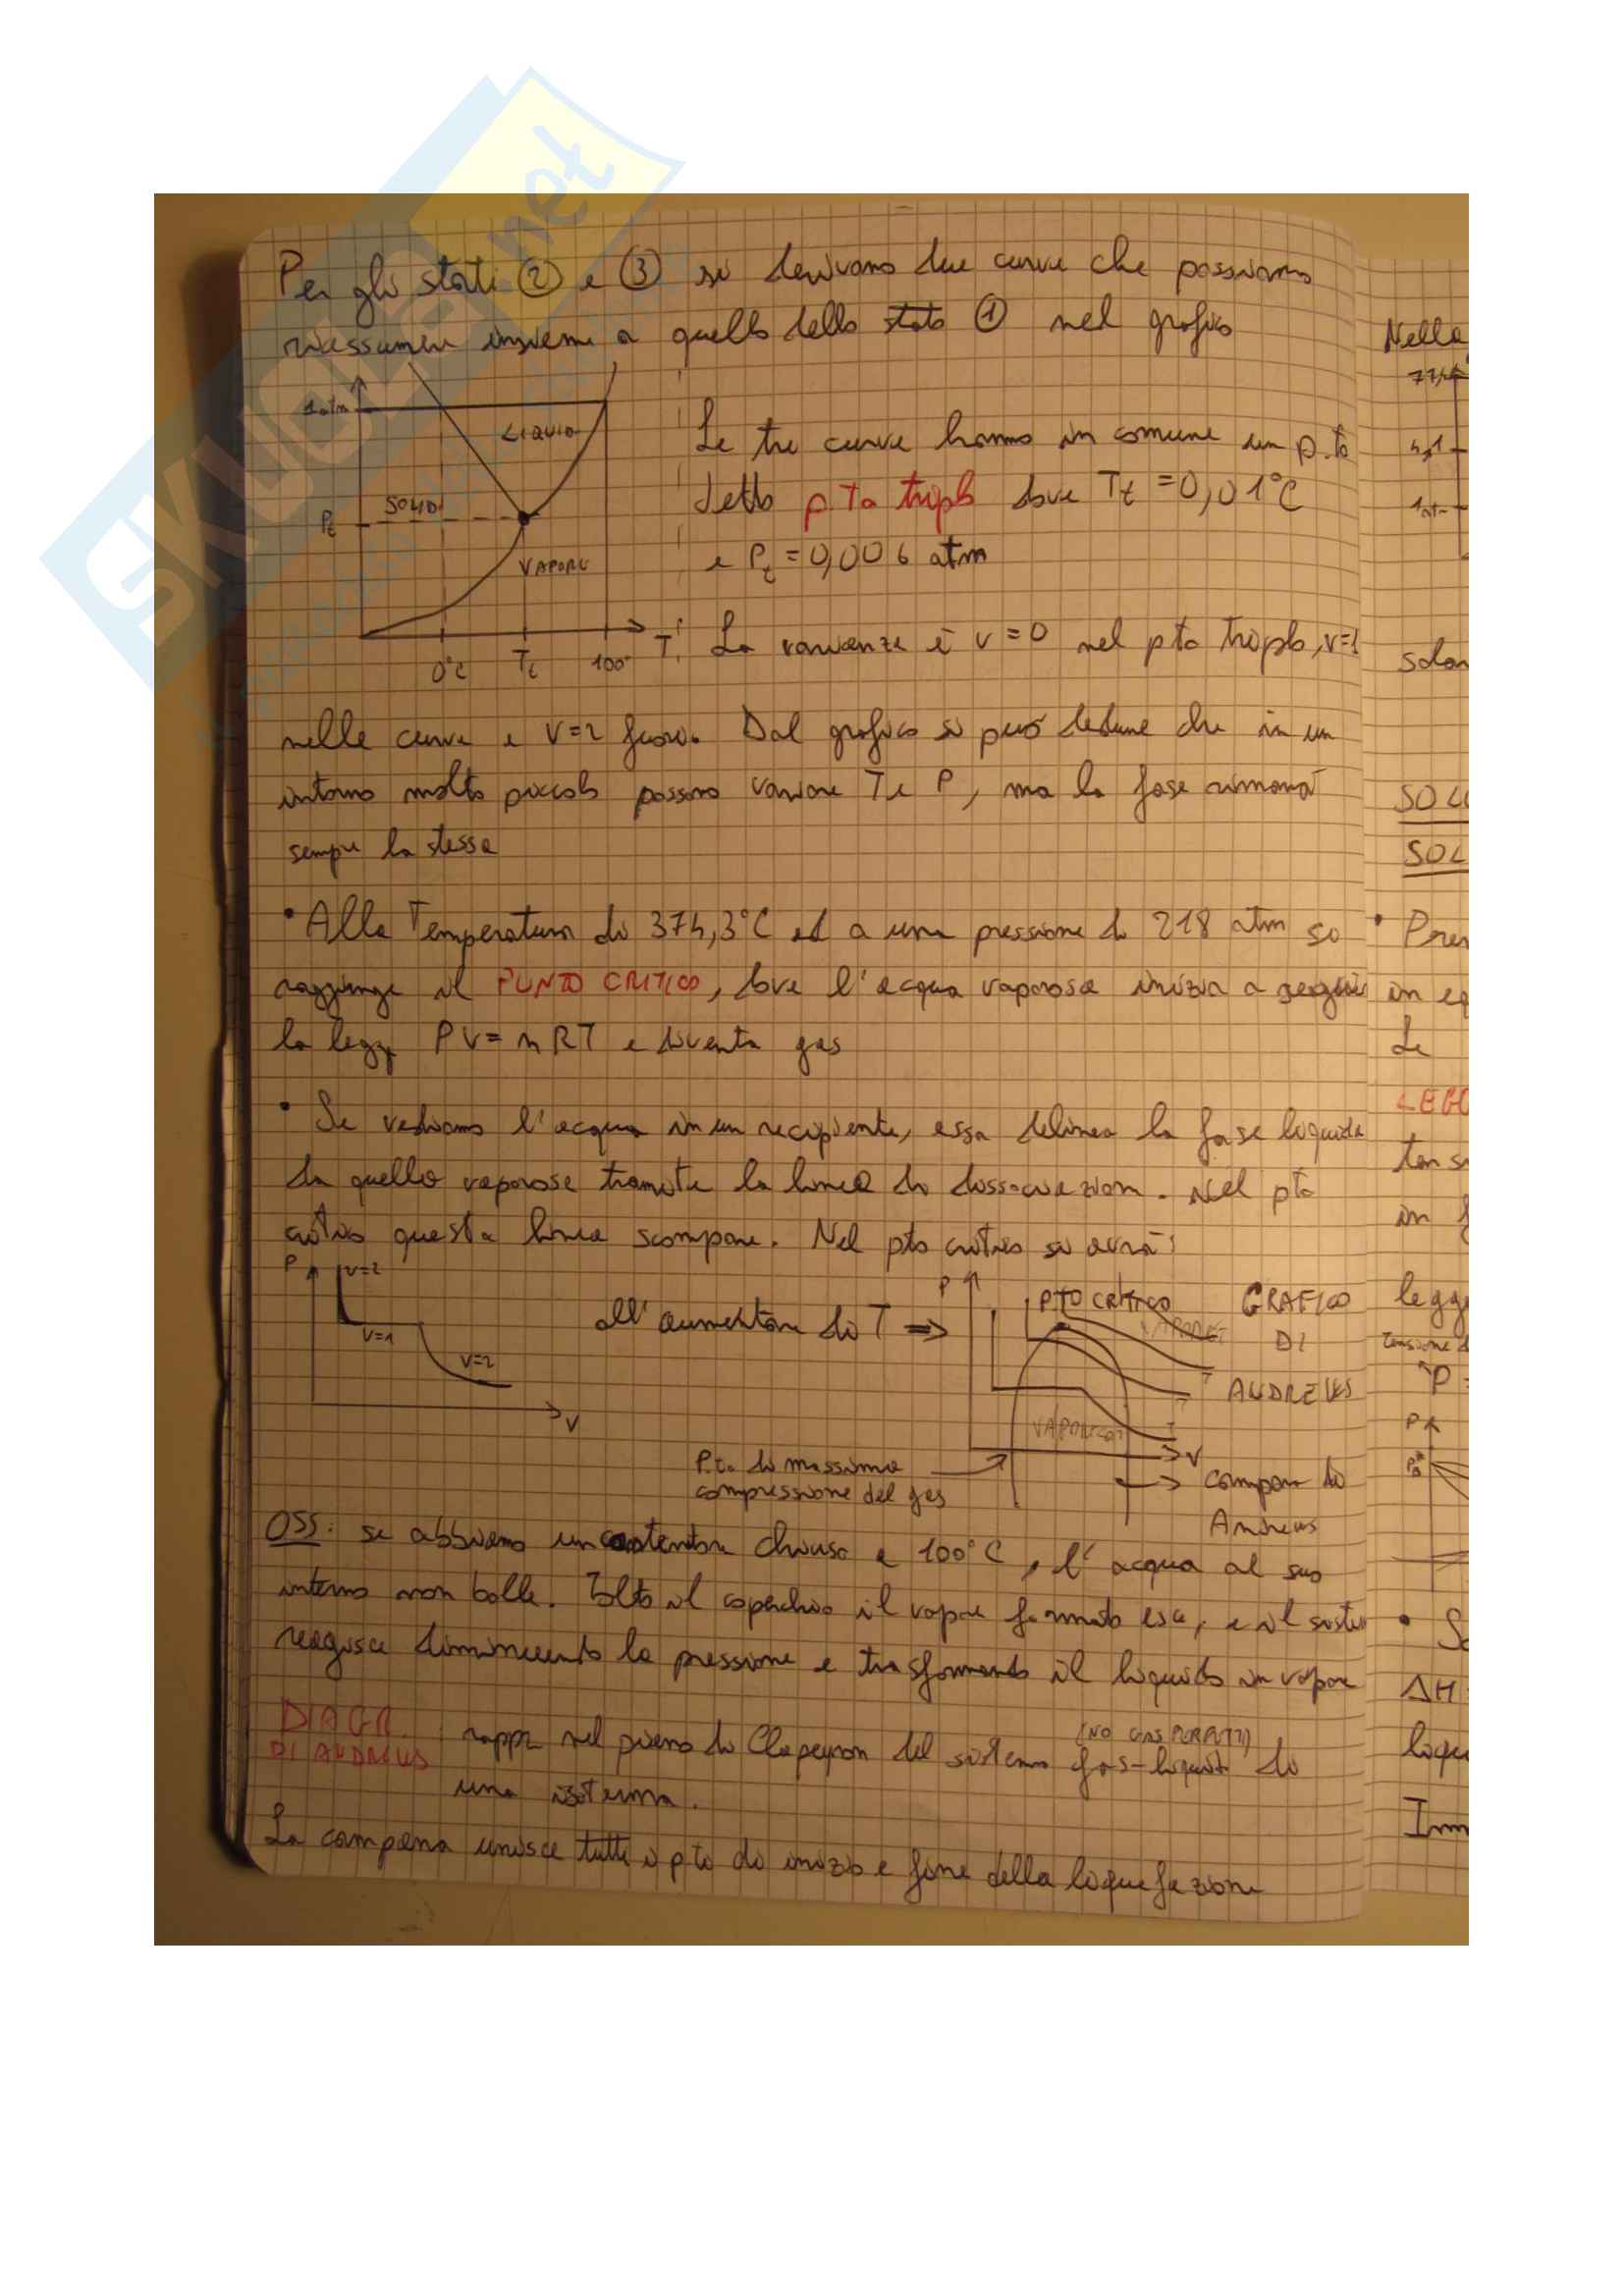 SKUOLA.net
Per gli stati ② e ③ si derivano due curve che possiamo
riassumere insieme a quello dello stato ① nel grafico
1 atm
LIQUIDO
SOLIDO
Pt
VAPORE
0°C
Tt
100°
T
Le tre curve hanno in comune un p.to
detto p.to triplo dove Tt = 0,01°C
e Pt = 0,006 atm
La varianza è v=0 nel pto triplo, v=1
nelle curve e v=2 fuori. Dal grafico si può dedurre che in un
intorno molto piccolo possono variare T e P, ma la fase rimarrà
sempre la stessa
• Alla Temperatura di 374,3°C ed a una pressione di 218 atm si
raggiunge il PUNTO CRITICO, dove l'acqua vaporosa inizia a seguire
la legge PV=nRT e diventa gas
• Se vediamo l'acqua in un recipiente, essa delinea la fase liquida
da quella vaporosa tramite la linea di dissociazione. Nel pto
critico questa linea scompare. Nel pto critico si avrà:
P
v=2
v=1
v=2
V
all'aumentare di T ⇒
P
PTO CRITICO
GRAFICO
DI
ANDREWS
T
T
T
V
P.to di massima
compressione del gas
campana di
Andrews
OSS: se abbiamo un contenitore chiuso a 100°C, l'acqua al suo
interno non bolle. Tolto il coperchio il vapore formato esce, e il sistem
reagisce diminuendo la pressione e trasformando il liquido in vapore
DIAGR.
DI ANDREWS
: rappr nel piano di Clapeyron del sistema gas-liquido di
(NO GAS PERFETTI)
una isoterma.
La campana unisce tutti i pto di inizio e fine della liquefazione
Nella
4,1
1 atm
solar
SOLU
SOL
• Pren
in eq
Le
LEGG
tensi
in f
legge
tensione d
P =
P
• So
ΔH
liqui
Imm